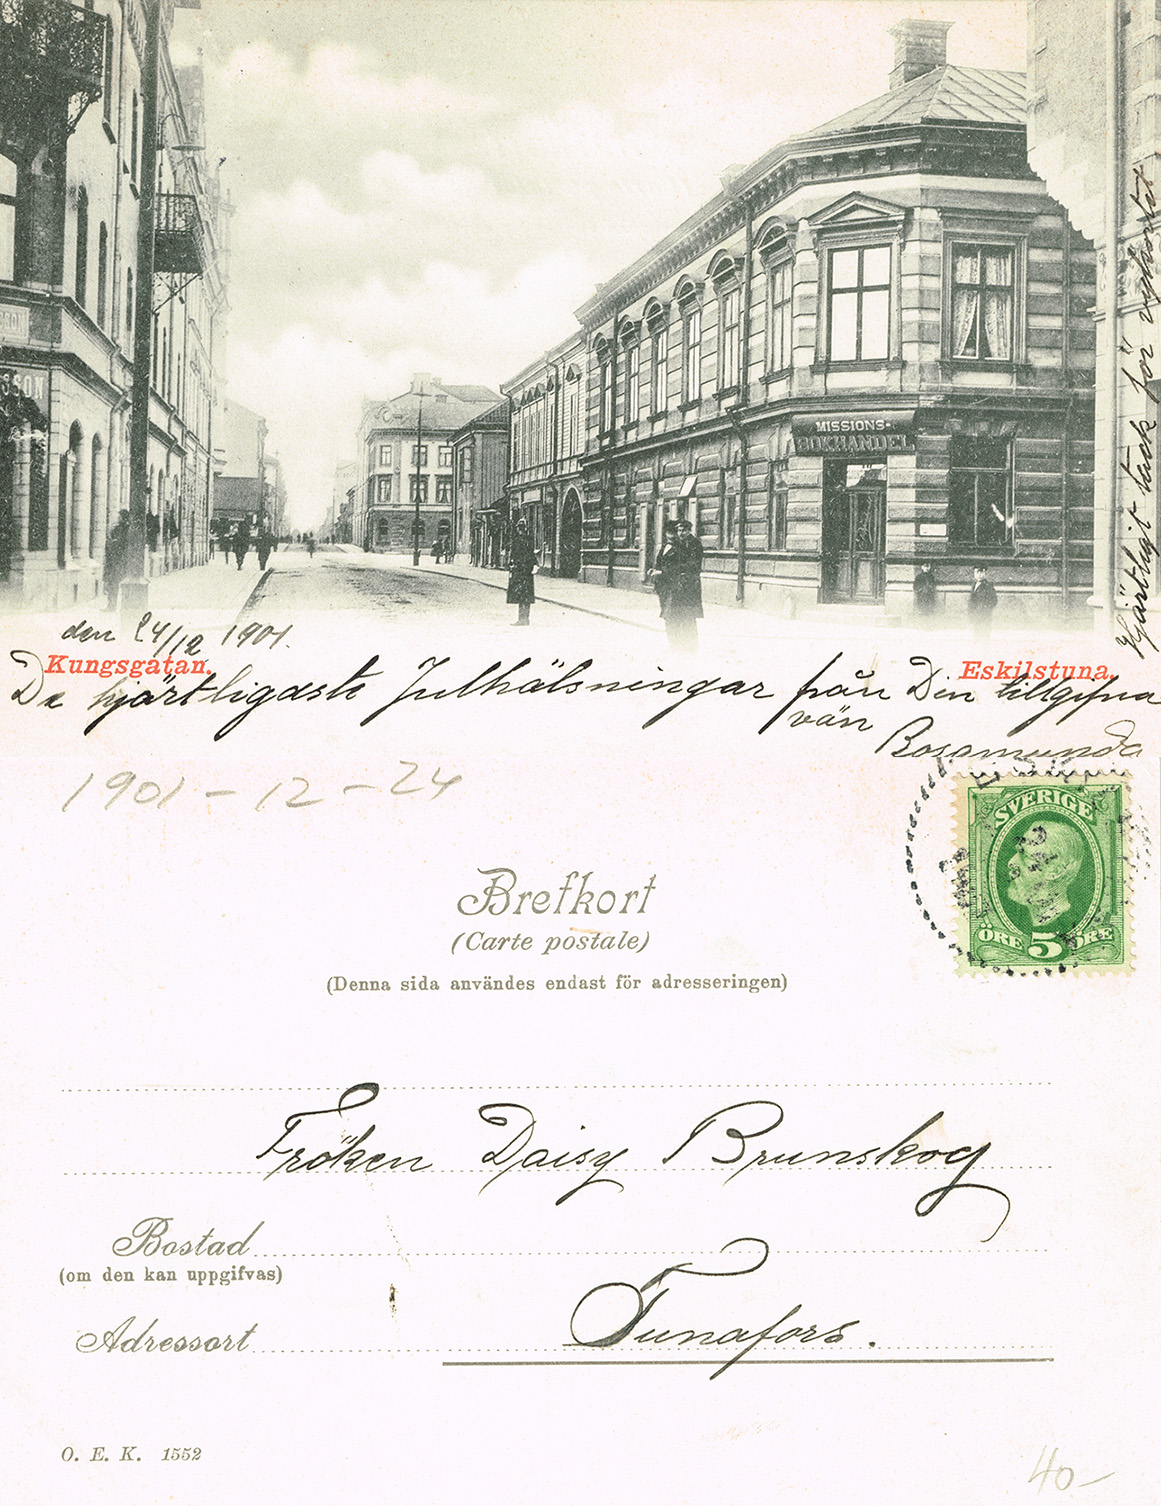 SSON
MISSIONS-
BOKHANDEL
Hjärtligt tack för vykortet
den 24/12 1901.
Kungsgatan.
Eskilstuna.
De hjärtligaste Julhälsningar från Din tillgifna
vän
Rosamunda
1901-12-24
SVERIGE
ÖRE 5 ÖRE
Brefkort
(Carte postale)
(Denna sida användes endast för adresseringen)
Fröken Daisy Brunskog
Bostad
(om den kan uppgifvas)
Adressort
Tunafors.
O. E. K. 1552
40-